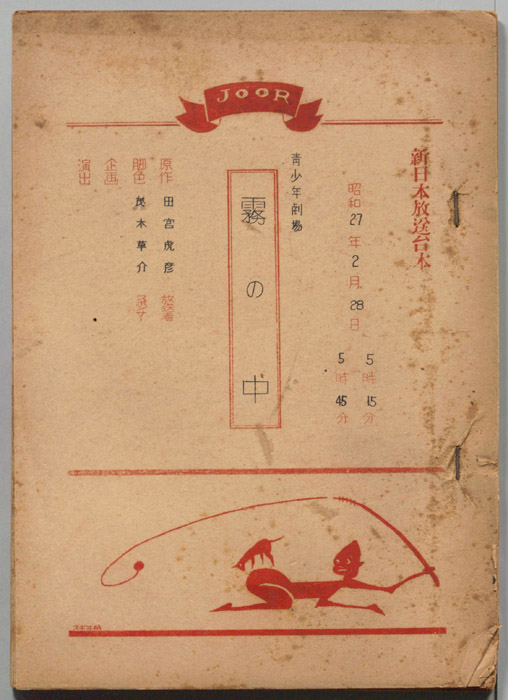 JOOR
新日本放送台本
昭和27年2月28日
5時15分
5時45分
青少年劇場
霧の中
原作 田宮虎彦
脚色 茂木草介
企画
演出